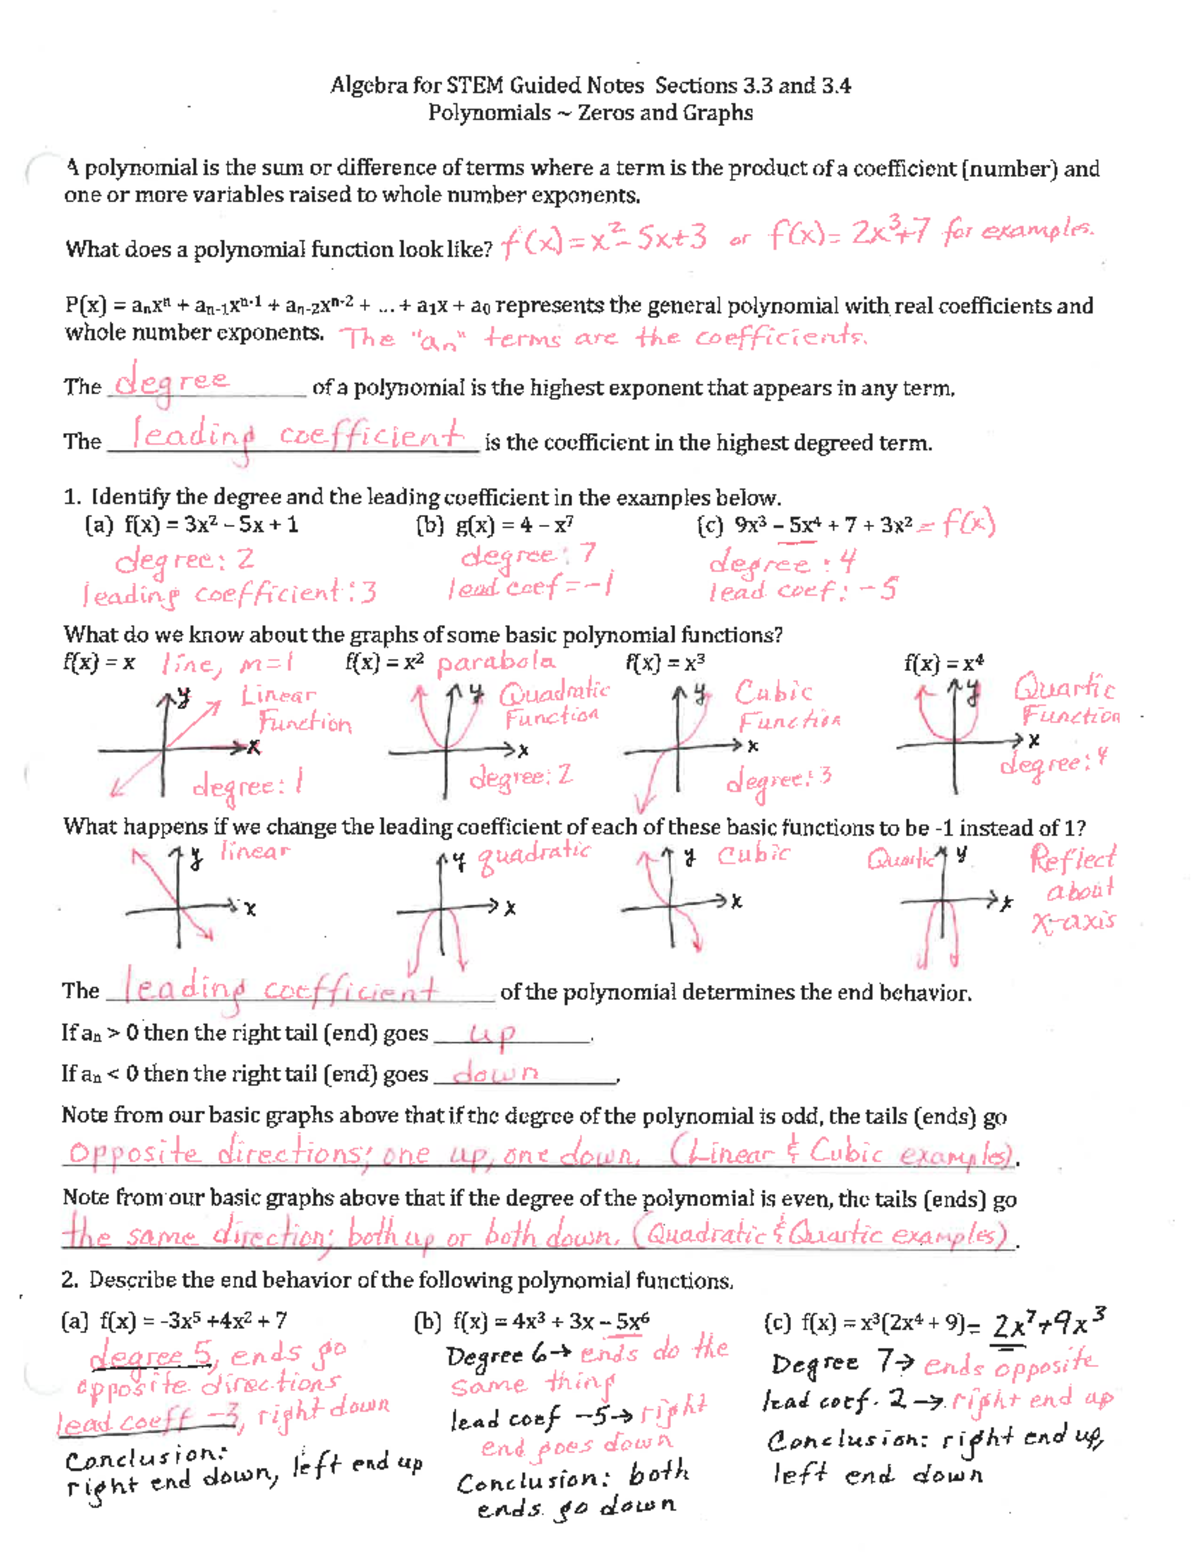 Algebra for STEM Guided Notes Sections 3.3 and 3.4
Polynomials ~ Zeros and Graphs
A polynomial is the sum or difference of terms where a term is the product of a coefficient (number) and
one or more variables raised to whole number exponents.
What does a polynomial function look like? f(x) = x² - 5x+3 or f(x) = 2x³+7 for examples.
P(x) = aₙxⁿ + aₙ₋₁xⁿ⁻¹ + aₙ₋₂xⁿ⁻² + ... + a₁x + a₀ represents the general polynomial with real coefficients and
whole number exponents. The "aₙ" terms are the coefficients.
The degree of a polynomial is the highest exponent that appears in any term.
The leading coefficient is the coefficient in the highest degreed term.
1. Identify the degree and the leading coefficient in the examples below.
(a) f(x) = 3x² – 5x + 1 (b) g(x) = 4 – x⁷ (c) 9x³ – 5x⁴ + 7 + 3x² = f(x)
degree: 2 degree: 7 degree: 4
leading coefficient: 3 lead coef = -1 lead coef: -5
What do we know about the graphs of some basic polynomial functions?
f(x) = x line, m=1 f(x) = x² parabola f(x) = x³ f(x) = x⁴
y Linear y Quadratic y Cubic y Quartic
Function Function Function Function
x x x x
degree: 1 degree: 2 degree: 3 degree: 4
What happens if we change the leading coefficient of each of these basic functions to be -1 instead of 1?
y linear y quadratic y Cubic Quartic y Reflect
about
x x x x
x-axis
The leading coefficient of the polynomial determines the end behavior.
If aₙ > 0 then the right tail (end) goes up.
If aₙ < 0 then the right tail (end) goes down.
Note from our basic graphs above that if the degree of the polynomial is odd, the tails (ends) go
opposite directions; one up, one down. (Linear & Cubic examples).
Note from our basic graphs above that if the degree of the polynomial is even, the tails (ends) go
the same direction; both up or both down. (Quadratic & Quartic examples).
2. Describe the end behavior of the following polynomial functions.
(a) f(x) = -3x⁵ +4x² + 7 (b) f(x) = 4x³ + 3x – 5x⁶ (c) f(x) = x³(2x⁴ + 9) = 2x⁷+9x³
degree 5, ends go Degree 6→ ends do the Degree 7→ ends opposite
opposite directions same thing lead coef. 2 → right end up
lead coeff -3, right down lead coef -5→ right Conclusion: right end up,
Conclusion: end goes down left end down
right end down, left end up Conclusion: both
ends go down